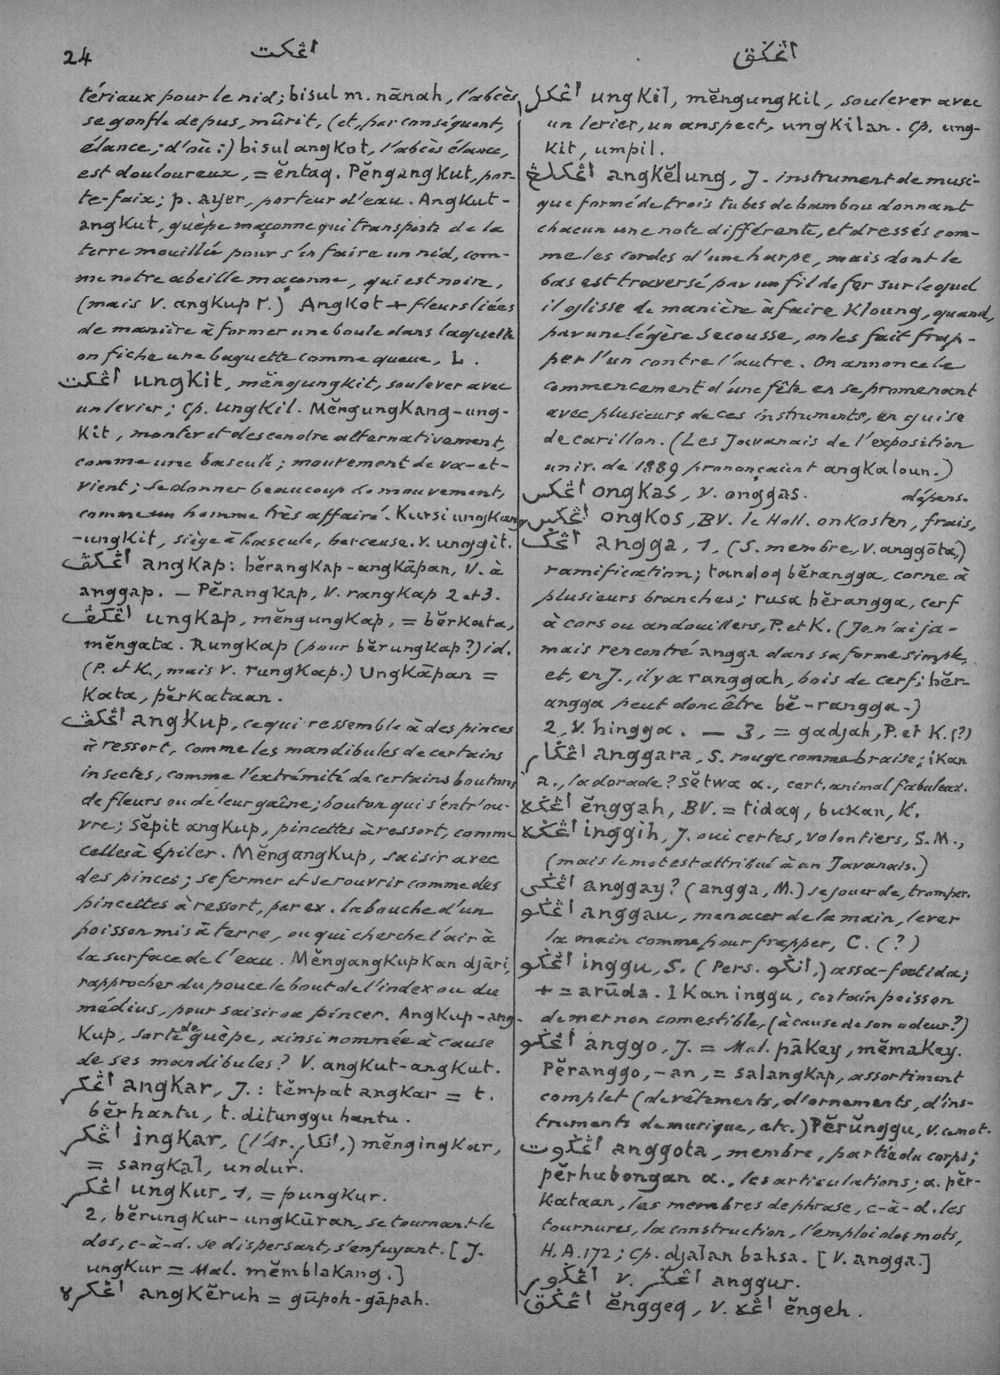 24
اڠكت
اڠݢق
tériaux pour le nid; bisul m. nānah, l'abcès
se gonfle de pus, mûrit, (et, par conséquent,
élance; d'où:) bisul angkot, l'abcès élance,
est douloureux, = ĕntaq. Pĕngangkut, por-
te-faix; p. ayer, porteur d'eau. Angkut-
angkut, guêpe maçonne qui transporte de la
terre mouillée pour s'en faire un nid, com-
me notre abeille maçonne, qui est noire,
(mais V. angkup Γ.) Angkot + fleurs liées
de manière à former une boule dans laquelle
on fiche une baguette comme queue, L.
اڠكت ungkit, mĕngungkit, soulever avec
un levier; Cp. ungkil. Mĕngungkang-ung-
kit, monter et descendre alternativement,
comme une bascule; mouvement de va-et-
vient; se donner beaucoup de mouvement,
comme un homme très affairé. Kursi ungkang
-ungkit, siège à bascule, berceuse. V. unggit.
اڠكڤ angkap: bĕrangkap-angkāpan, V. à
anggap. — Pĕrangkap, V. rangkap 2 et 3.
اڠكڤ ungkap, mĕngungkap, = bĕrkata,
mĕngata. Rungkap (pour bĕrungkap?) id.
(P. et K., mais V. rungkap.) Ungkāpan =
kata, pĕrkataan.
اڠكڤ angkup, ce qui ressemble à des pinces
à ressort, comme les mandibules de certains
insectes, comme l'extrémité de certains boutons
de fleurs ou de leur gaîne; bouton qui s'entr'ou-
vre; Sĕpit angkup, pincettes à ressort, comme
celles à épiler. Mĕngangkup, saisir avec
des pinces; se fermer et se rouvrir comme des
pincettes à ressort, par ex. la bouche d'un
poisson mis à terre, ou qui cherche l'air à
la surface de l'eau. Mĕngangkupkan djāri,
rapprocher du pouce le bout de l'index ou du
médius, pour saisir ou pincer. Angkup-ang-
kup, sorte de guêpe, ainsi nommée à cause
de ses mandibules? V. angkut-angkut.
اڠكر angkar, J.: tĕmpat angkar = t.
bĕrhantu, t. ditunggu hantu.
اڠكر ingkar, (l'Ar. انكار,) mĕngingkar,
= sangkal, undur.
اڠكر ungkur, 1, = pungkur.
2, bĕrungkur-ungkūran, se tournant le
dos, c-à-d. se dispersant, s'enfuyant. [J.
ungkur = Mal. mĕmblakang.]
اڠكره angkĕruh = gūpoh-gāpah.
اڠكل ungkil, mĕngungkil, soulever avec
un levier, un anspect, ungkilan. Cp. ung-
kit, umpil.
اڠكلڠ angkĕlung, J. instrument de musi-
que formé de trois tubes de bambou donnant
chacun une note différente, et dressés com-
me les cordes d'une harpe, mais dont le
bas est traversé par un fil de fer sur lequel
il glisse de manière à faire kloung, quand,
par une légère secousse, on les fait frap-
per l'un contre l'autre. On annonce le
commencement d'une fête en se promenant
avec plusieurs de ces instruments, en guise
de carillon. (Les Javanais de l'exposition
univ. de 1889 prononçaient angkaloun.)
اڠكس ongkas, V. onggas.
اڠكس ongkos, BV. le Holl. onkosten, frais, dépens.
اڠݢ angga, 1, (S. membre, V. anggōta,)
ramification; tandoq bĕrangga, corne à
plusieurs branches; rusa bĕrangga, cerf
à cors ou andouillers, P. et K. (Je n'ai ja-
mais rencontré angga dans sa forme simple,
et, en J., il y a ranggah, bois de cerf; bĕr-
angga peut donc être bĕ-rangga.)
2, V. hingga. — 3, = gadjah, P. et K. (?)
اڠݢار anggara, S. rouge comme braise; ikan
a., la dorade? Sĕtwa a., cert. animal fabuleux.
اڠݢه ĕnggah, BV. = tidaq, bukan, K.
اڠݢه inggih, J. oui certes, volontiers, S.M.,
(mais le mot est attribué à un Javanais.)
اڠݢى anggay? (angga, M.) se jouer de, tromper.
اڠݢو anggau, menacer de la main, lever
la main comme pour frapper, C. (?)
اڠݢو inggu, S. (Pers. انگو,) assa-fœtida;
+ = arūda. Ikan inggu, certain poisson
de mer non comestible, (à cause de son odeur?)
اڠݢو anggo, J. = Mal. pākey, mĕmakey.
Pĕranggo, -an, = salangkap, assortiment
complet (de vêtements, d'ornements, d'ins-
truments de musique, etc.) Pĕrŭnggu, V. ce mot.
اڠݢوت anggota, membre, partie du corps;
pĕrhubongan a., les articulations; a. pĕr-
kataan, les membres de phrase, c-à-d. les
tournures, la construction, l'emploi des mots,
H.A. 172; Cp. djalan bahsa. [V. angga.]
اڠݢور V. اڠݢر anggur.
اڠݢق ĕnggeq, V. اڠه ĕngeh.